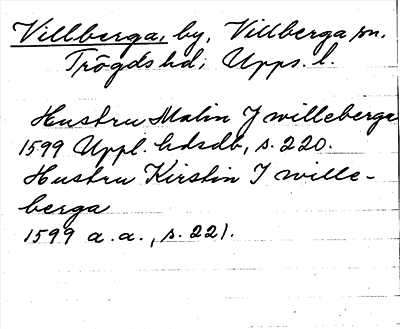 Villberga, by, Villberga sn.
Trögds hd; Upps. l.
Hustru Malin J willeberga
1599 Uppl. hdsdb, s. 220.
Hustru Kirstin J wille-
berga
1599 a.a., s. 221.